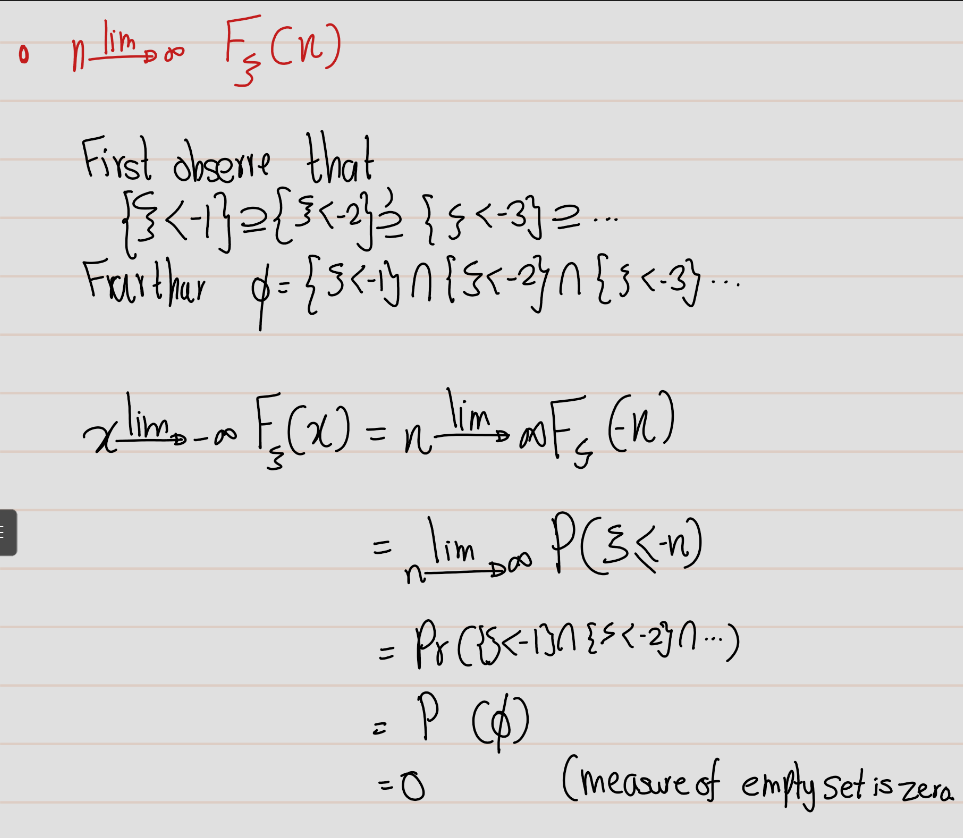 • n lim→∞ F_ξ(n)
First observe that
{ξ<-1}⊇{ξ<-2}⊇{ξ<-3}⊇...
Frurthar ϕ={ξ<-1}∩{ξ<-2}∩{ξ<-3}...
x lim→-∞ F_ξ(x) = n lim→∞ F_ξ(-n)
= n lim→∞ P(ξ<-n)
= Pr({ξ<-1}∩{ξ<-2}∩...)
= P (ϕ)
=0 (measure of empty set is zero